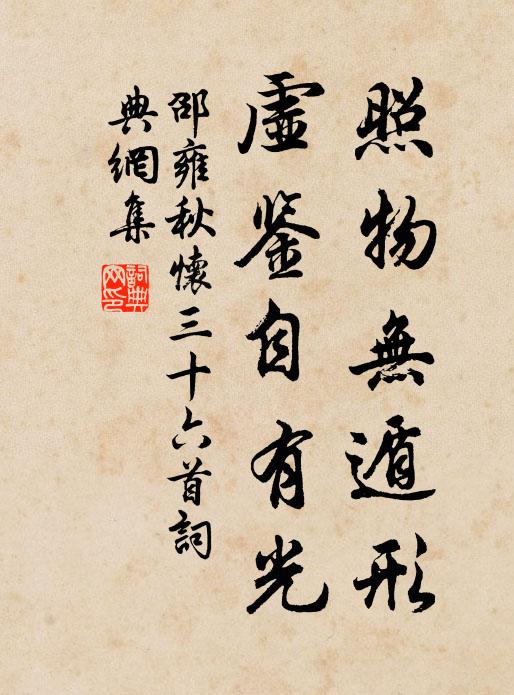 照物無遁形
虛鉴自有光
邵雍秋懷三十六首詞
典網集
詞典
网印